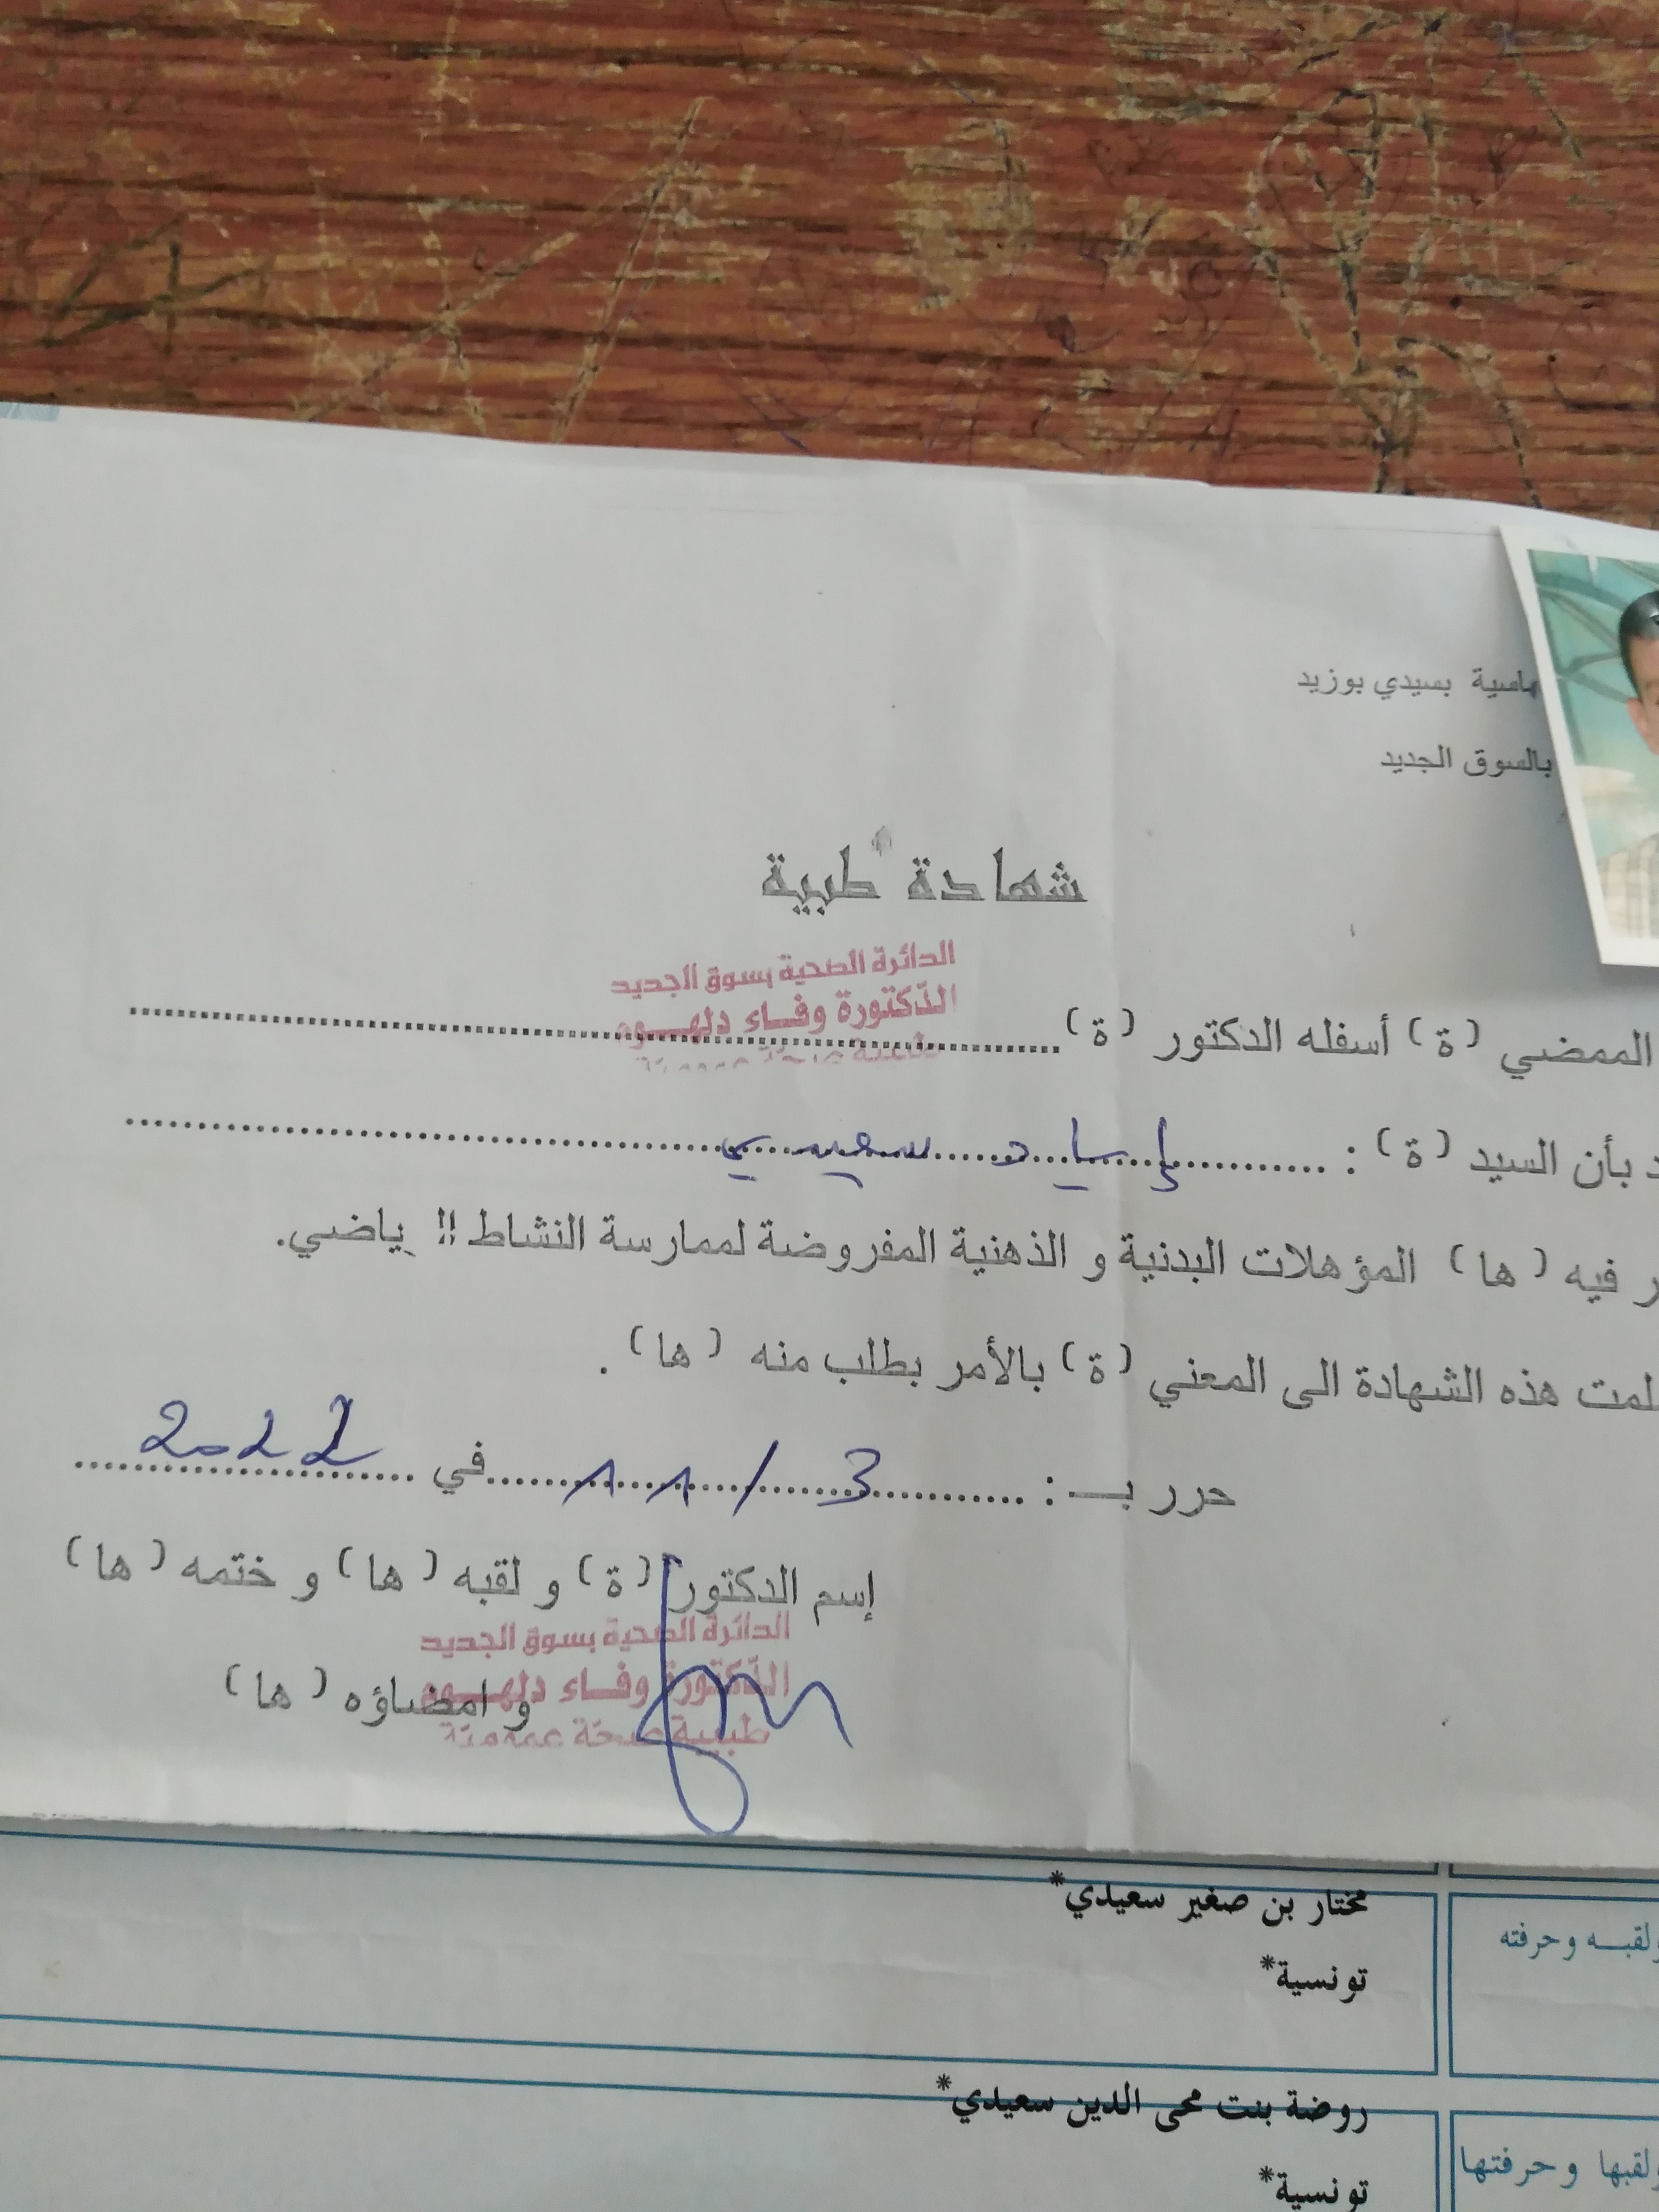 بسيدي بوزيد
بالسوق الجديد
شهادة طبية
الدائرة الصحية بسوق الجديد
الدّكتورة وفاء دلهوم
الممضي (ة) أسفله الدكتور (ة)
بأن السيد (ة) : إياد سعيدي
فيه (ها) المؤهلات البدنية و الذهنية المفروضة لممارسة النشاط !! ياضي.
هذه الشهادة الى المعني (ة) بالأمر بطلب منه (ها) .
حرر بـ : 3 / 11 في 2022
إسم الدكتور (ة) و لقبه (ها) و ختمه (ها)
الدائرة الصحية بسوق الجديد
الدّكتورة وفاء دلهوم
و امضاؤه (ها)
طبيبة صحّة عموميّة
مختار بن صغير سعيدي*
ولقبه وحرفته
تونسية*
روضة بنت محى الدين سعيدي*
ولقبها وحرفتها
تونسية*